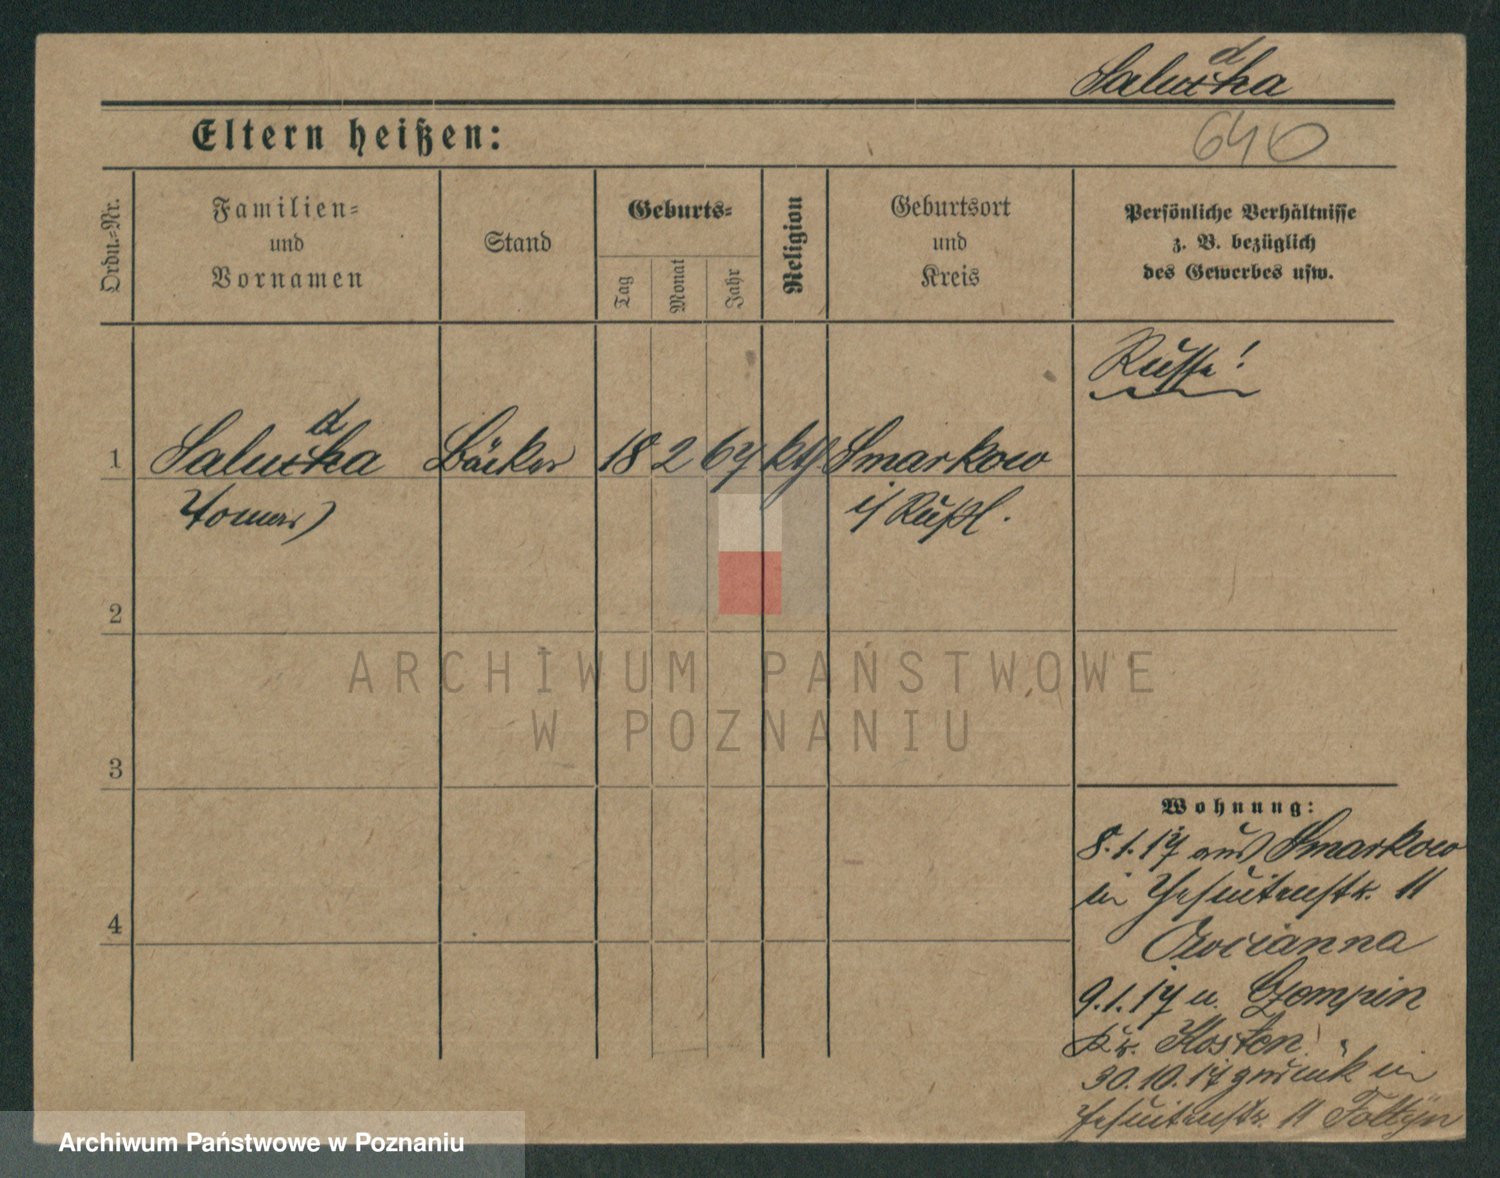 Saludka
640
Eltern heißen:
Ordn.-Nr.
Familien-
und
Vornamen
Stand
Geburts-
Tag
Monat
Jahr
Religion
Geburtsort
und
Kreis
Persönliche Verhältnisse
z. B. bezüglich
des Gewerbes usw.
Russe!
1 Saludka Bäcker 18 2 67 kth. Smarkow
i/ Rußl.
2
3
4
ARCHIWUM PAŃSTWOWE
W POZNANIU
Wohnung:
8.1.17 aus Smarkow
in Jesuitenstr. 11
9.1.17 n. Czempin
Kr. Kosten
30.10.17 zurück in
Jesuitenstr. 11
Archiwum Państwowe w Poznaniu